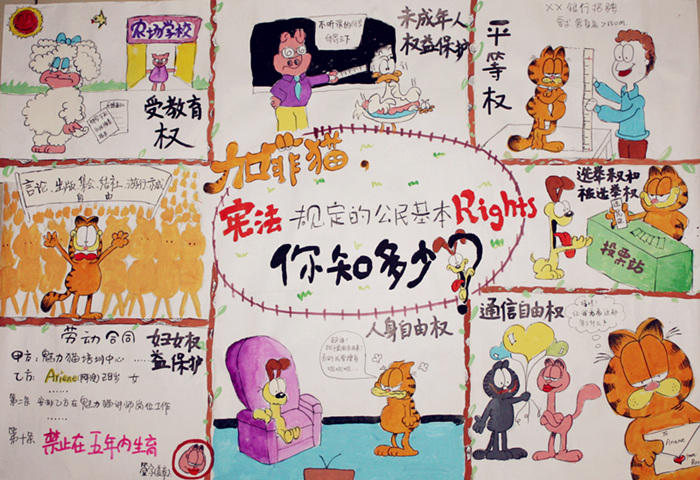 农场学校
受教育
权
未成年人
权益保护
平等权
XX银行招聘
言论、出版、集会、结社、游行示威
自由
加菲猫，
宪法规定的公民基本Rights
你知多少?
选举权和
被选举权
投票站
劳动合同
妇女权
益保护
甲方：魅力猫培训中心
乙方：Ariene
女
......
第二条
乙方在魅力猫讲师岗位工作
......
第十条
禁止在五年内生育
人身自由权
通信自由权